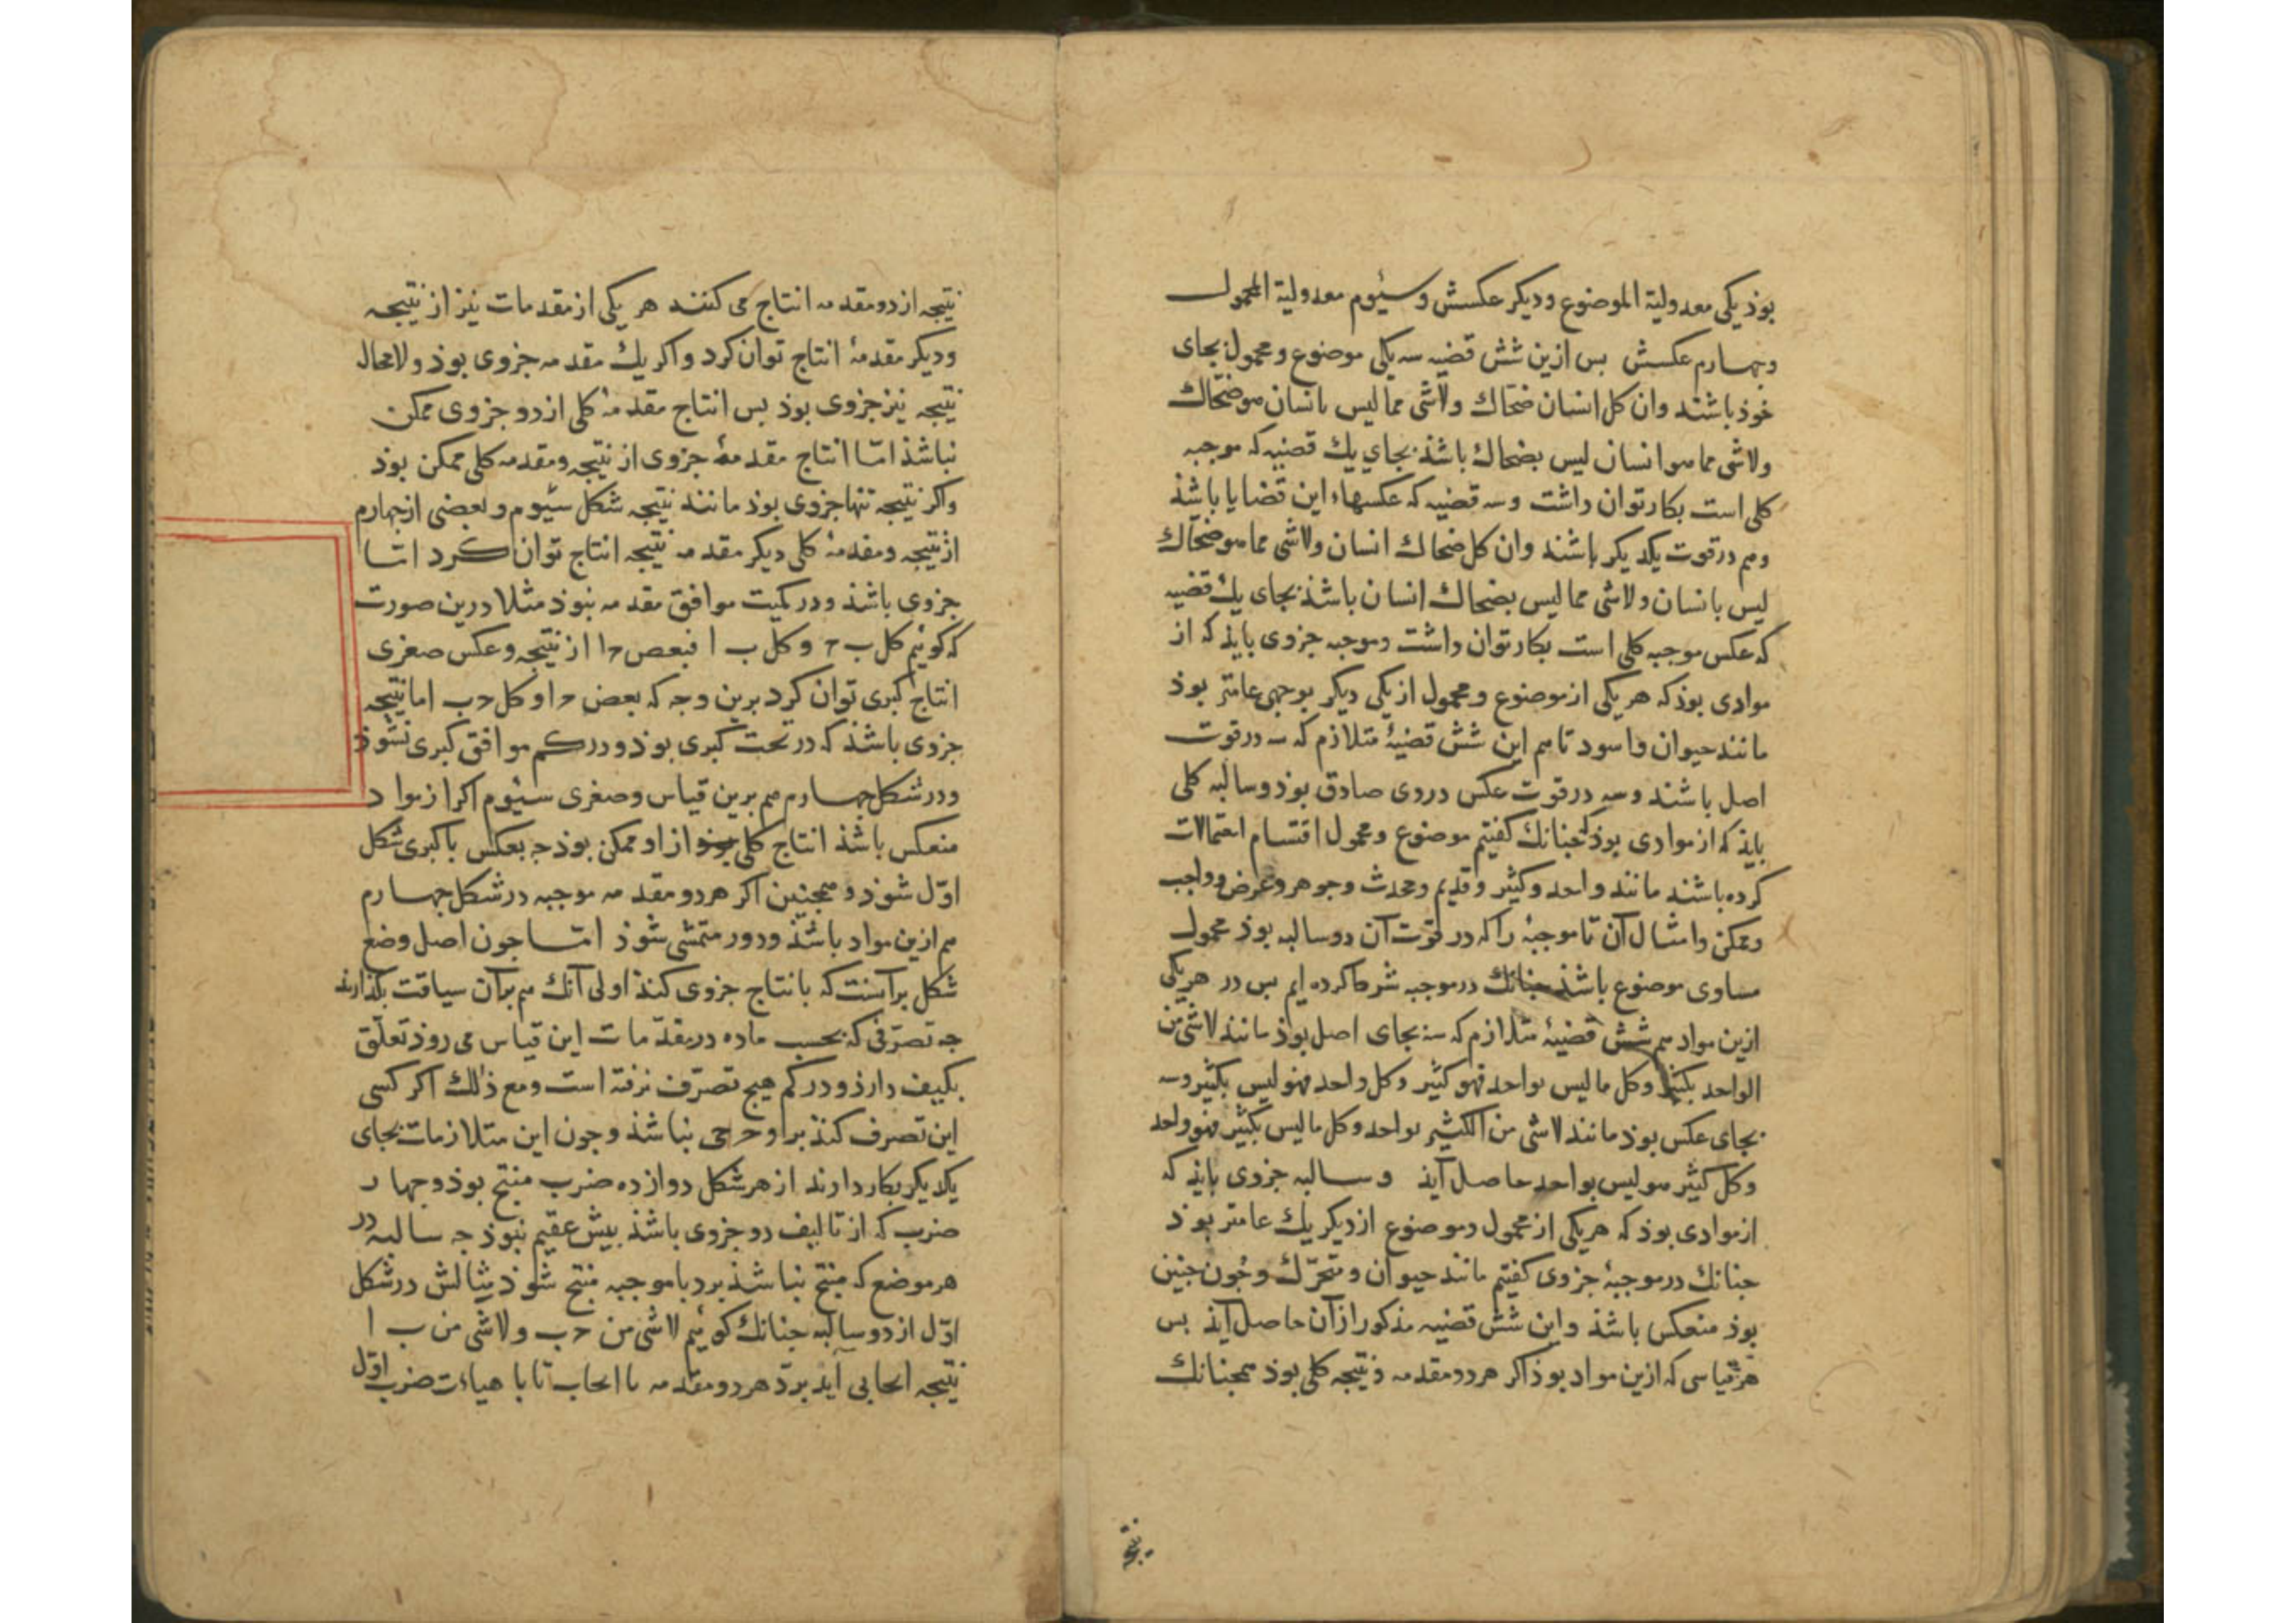 بوذ یکی معدولیة الموضوع ودیکر عکسش وسئیوم معدولیة المحمول
وجهارم عکسش بس ازین شش قضیه سه یکی موضوع ومحمول بجای
خوذ باشند وان کل انسان ضحّاك ولاشی مما لیس بانسان هو ضحّاك
ولاشی مما هو انسان لیس بضحاك باشذ بجای یك قضیه که موجبه
کلی است بکار توان داشت وسه قضیه که عکسهاء این قضایا باشذ
وهم در قوت یکدیکر باشند وان کل ضحاك انسان ولاشی مما هو ضحّاك
لیس بانسان ولاشی مما لیس بضحاك انسان باشذ بجای یك قضیه
که عکس موجبه کلی است بکار توان داشت وموجبه جزوی بایذ که از
موادی بوذ که هر یکی از موضوع ومحمول از یکی دیکر بوجهی عامتر بوذ
مانند حیوان واسود تا هم این شش قضیهٔ متلازم که سه در قوت
اصل باشند وسه در قوت عکس در وی صادق بوذ وسالبه کلی
بایذ که از موادی بوذ که جنانك کفتیم موضوع ومحمول اقتسام احتمالات
کرده باشند مانند واحد وکثیر وقدیم ومحدث وجوهر وعرض وواجب
وممکن وامثال آن تا موجبهٔ را که در قوت آن دو سالبه بوذ محمول
مساوی موضوع باشذ جنانك در موجبه شرط کرده ایم بس در هر یکی
ازین مواد هم شش قضیهٔ متلازم که سه بجای اصل بوذ مانند لاشی من
الواحد بکثیر وکل ما لیس بواحد فهو کثیر وکل واحد فهو لیس بکثیر وسه
بجای عکس بوذ مانند لاشی من الکثیر بواحد وکل ما لیس بکثیر فهو واحد
وکل کثیر هو لیس بواحد حاصل آیذ وسالبه جزوی بایذ که
از موادی بوذ که هر یکی از محمول وموضوع از دیکر یك عامتر بوذ
جنانك در موجبهٔ جزوی کفتیم مانند حیوان ومتحرّك وجون جنین
بوذ منعکس باشذ واین شش قضیه مذکور از آن حاصل آیذ بس
هر قیاسی که ازین مواد بوذ اکر هر دو مقدمه ونتیجه کلی بوذ همجنانك
نتیجه از دو مقدمه انتاج می کنند هر یکی از مقدمات نیز از نتیجه
ودیکر مقدمهٔ انتاج توان کرد واکر یك مقدمه جزوی بوذ ولامحاله
نتیجه نیز جزوی بوذ بس انتاج مقدمهٔ کلی از دو جزوی ممکن
نباشذ امّا انتاج مقدمهٔ جزوی از نتیجه ومقدمه کلی ممکن بوذ
واکر نتیجه تنها جزوی بوذ مانند نتیجه شکل سئیوم وبعضی از جهارم
از نتیجه ومقدمهٔ کلی دیکر مقدمه نتیجه انتاج توان کرد امّا
جزوی باشذ ودر کمیت موافق مقدمه نبوذ مثلا درین صورت
که کوئیم کل ب ح وکل ب ا فبعض ح ا از نتیجه وعکس صغری
انتاج کبری توان کرد برین وجه که بعض ح ا وکل ح ب اما نتیجه
جزوی باشذ که در تحت کبری بوذ ودر کم موافق کبری نشوذ
ودر شکل جهارم هم برین قیاس وصغری سئیوم اکر از مواد
منعکس باشذ انتاج کلی از او ممکن بوذ جه بعکس با کبری شکل
اوّل شوذ وهمجنین اکر هر دو مقدمه موجبه در شکل جهارم
هم ازین مواد باشذ ودور متمشی شوذ امّا جون اصل وضع
شکل بر آنست که بانتاج جزوی کنذ اولی آنك هم بران سیاقت بکذارند
جه تصرّفی که بحسب ماده در مقدّمات این قیاس می روذ تعلّق
بکیف دارذ ودر کم هیج تصرّف نرفته است ومع ذلك اکر کسی
این تصرف کنذ بر او حرجی نباشذ وجون این متلازمات بجای
یکدیکر بکار دارند از هر شکل دوازده ضرب منتج بوذ وجهار
ضرب که از تالیف دو جزوی باشذ بیش عقیم نبوذ جه سالبه در
هر موضع که منتج نباشذ برد با موجبه منتج شوذ مثالش در شکل
اوّل از دو سالبه جنانك کوئیم لاشی من ح ب ولاشی من ب ا
نتیجه ایجابی آید بردّ هر دو مقدمه با ایجاب تا با هیاءت ضرب اوّل